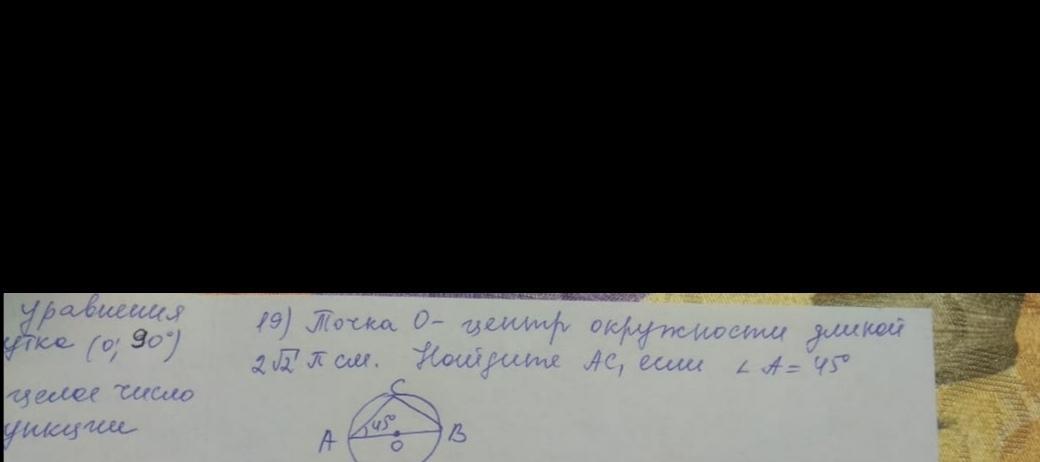 уравнения
утка (0; 90°)
целое число
ункции
19) Точка О- центр окружности длиной
2√2 π см. Найдите АС, если ∠ А = 45°
C
A 45° B
O